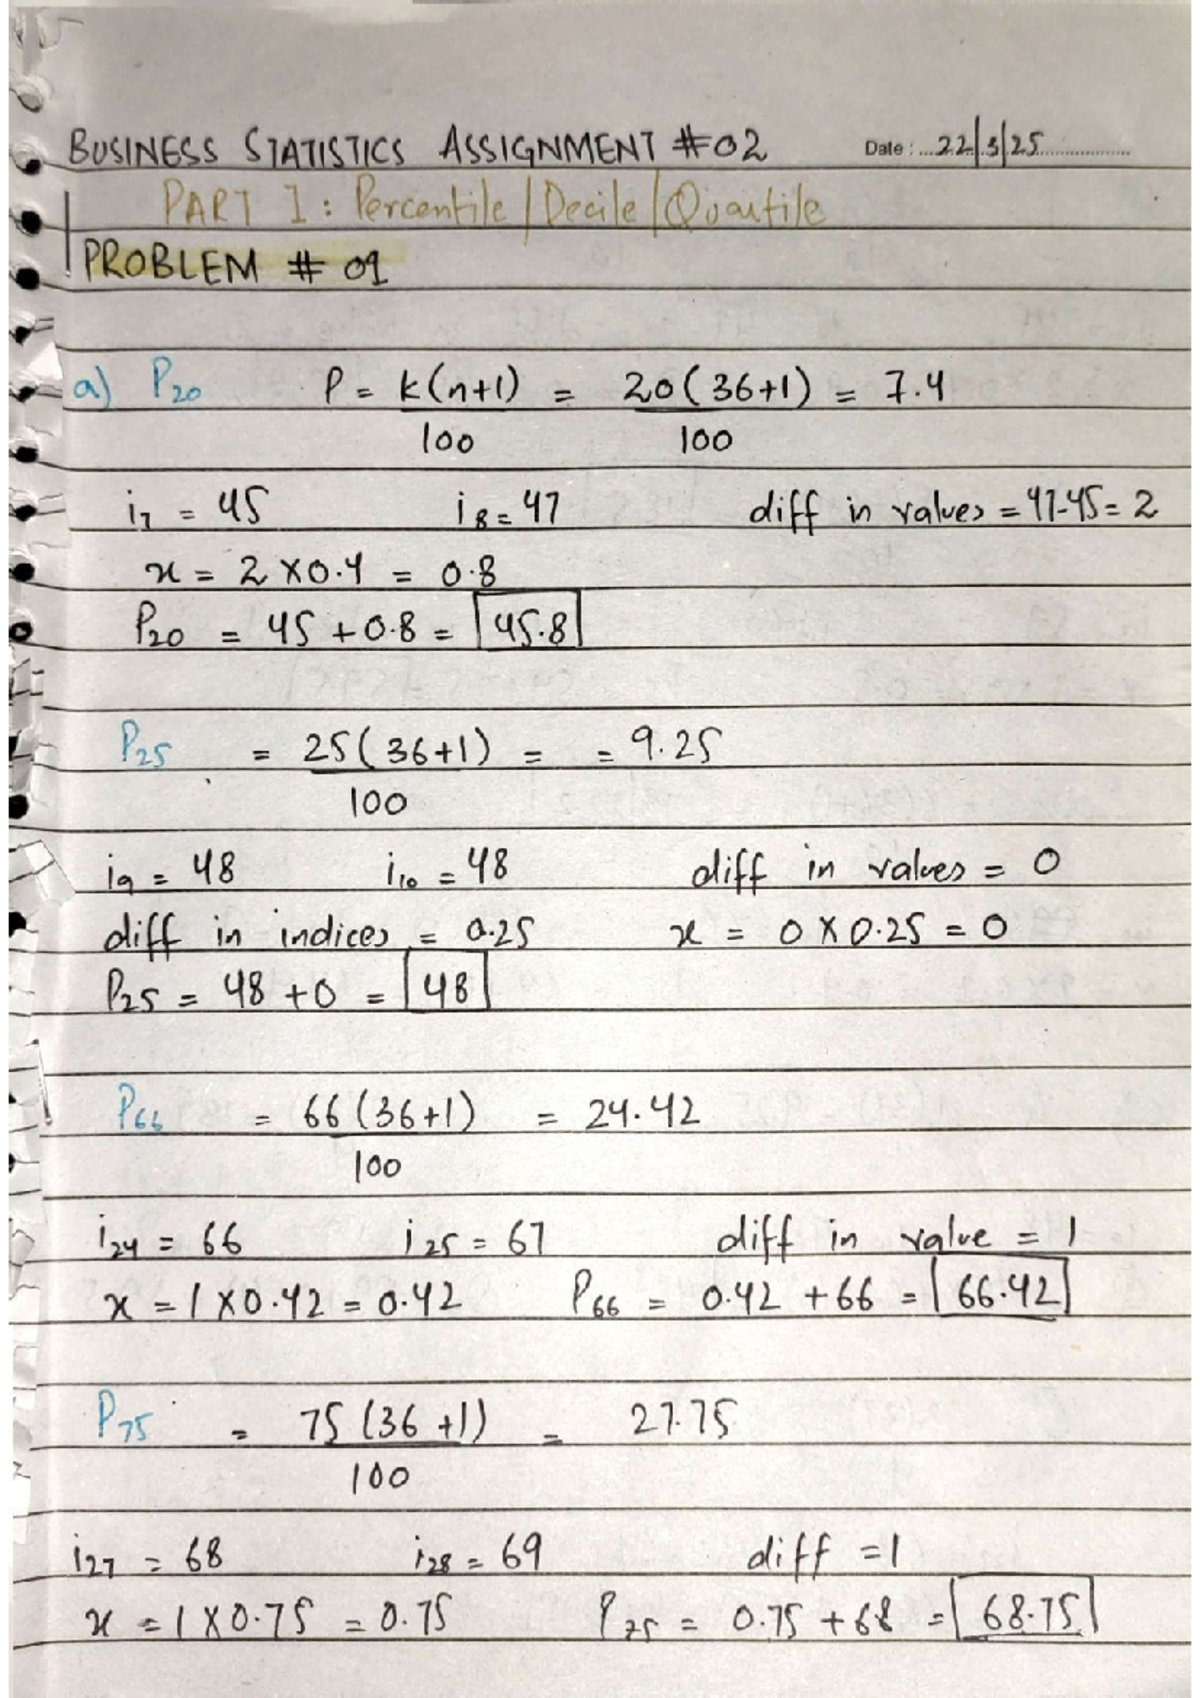 BUSINESS STATISTICS ASSIGNMENT #02 Date: 22/3/25
PART I: Percentile/Decile/Quartile
PROBLEM # 01
a) P20 P = k(n+1) = 20(36+1) = 7.4
100 100
i7 = 45 i8 = 47 diff in values = 47-45 = 2
x = 2 x 0.4 = 0.8
P20 = 45 + 0.8 = 45.8
P25 = 25(36+1) = = 9.25
100
i9 = 48 i10 = 48 diff in values = 0
diff in indices = 0.25 x = 0 x 0.25 = 0
P25 = 48 + 0 = 48
P66 = 66(36+1) = 24.42
100
i24 = 66 i25 = 67 diff in value = 1
x = 1 x 0.42 = 0.42 P66 = 0.42 + 66 = 66.42
P75 = 75(36+1) = 27.75
100
i27 = 68 i28 = 69 diff = 1
x = 1 x 0.75 = 0.75 P75 = 0.75 + 68 = 68.75